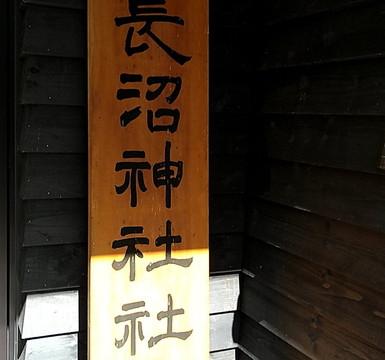 長沼神社社